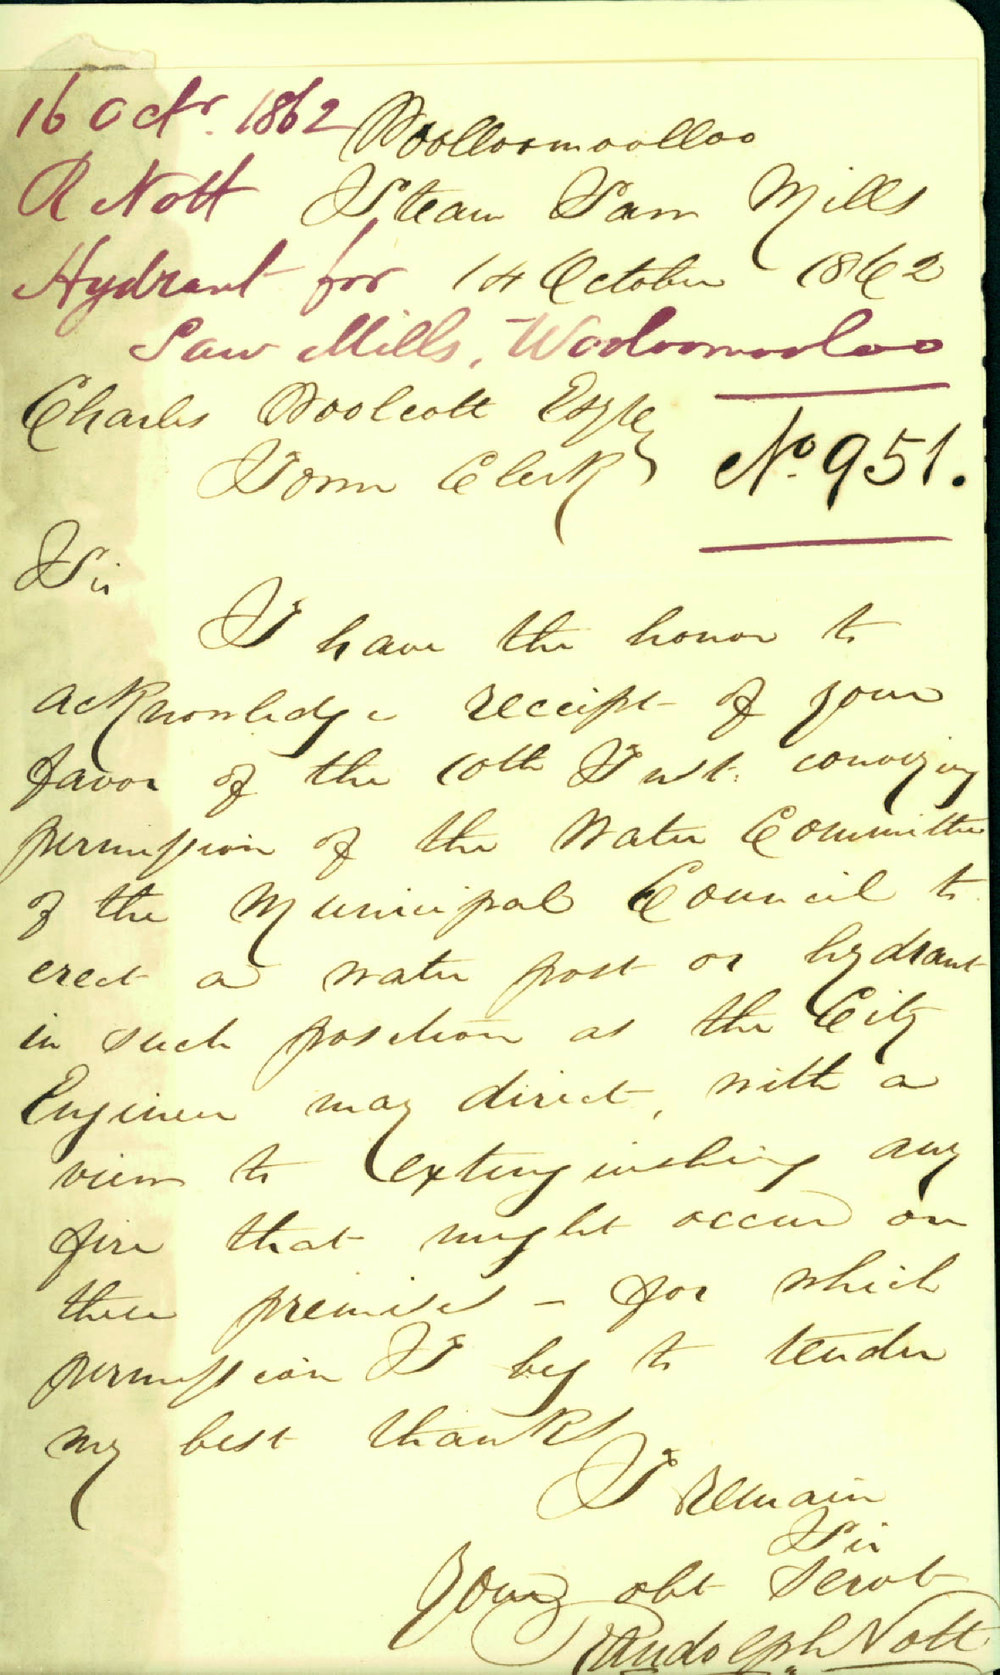 16 Octr. 1862
R Nott
Hydrant for
Saw Mills, Wooloomooloo
Woolloomoolloo
Steam Saw Mills
14 October 1862
Charles Woolcott Esqre
Town Clerk
No. 951.
Sir
I have the honor to
acknowledge receipt of your
favor of the 10th Inst. conveying
permission of the Water Committee
of the Municipal Council to
erect a water post or hydrant
in such position as the City
Engineer may direct, with a
view to extinguishing any
fire that might occur on
these premises - for which
permission I beg to tender
my best thanks
I remain
Sir
Your obt servt
Randolph Nott